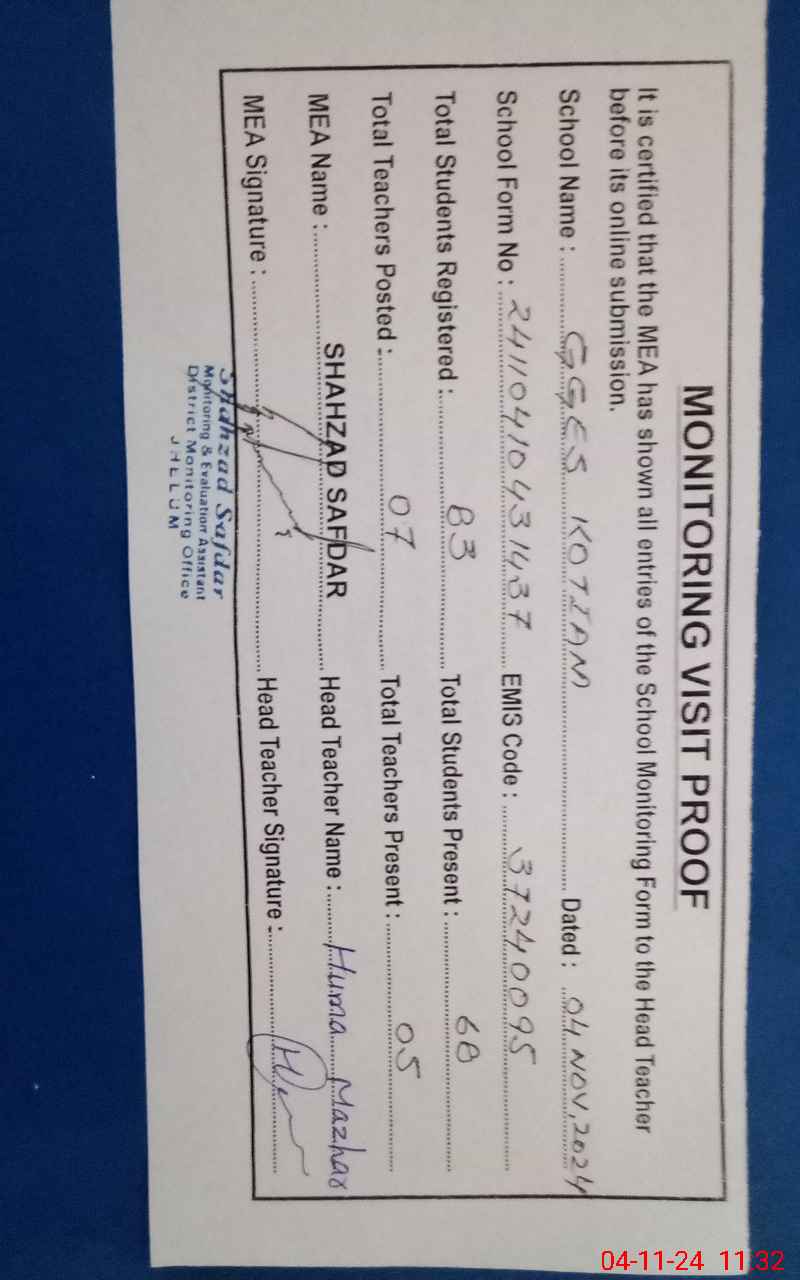 MONITORING VISIT PROOF
It is certified that the MEA has shown all entries of the School Monitoring Form to the Head Teacher
before its online submission.
School Name : GGES KOTIAM Dated : 04 NOV, 2024
School Form No : 2411041043 1437 EMIS Code : 37240095
Total Students Registered : 83 Total Students Present : 68
Total Teachers Posted : 07 Total Teachers Present : 05
MEA Name : SHAHZAD SAFDAR Head Teacher Name : Huma Mazhar
MEA Signature : Head Teacher Signature :
Shahzad Safdar
Monitoring & Evaluation Assistant
District Monitoring Office
JHELUM
04-11-24 11:32